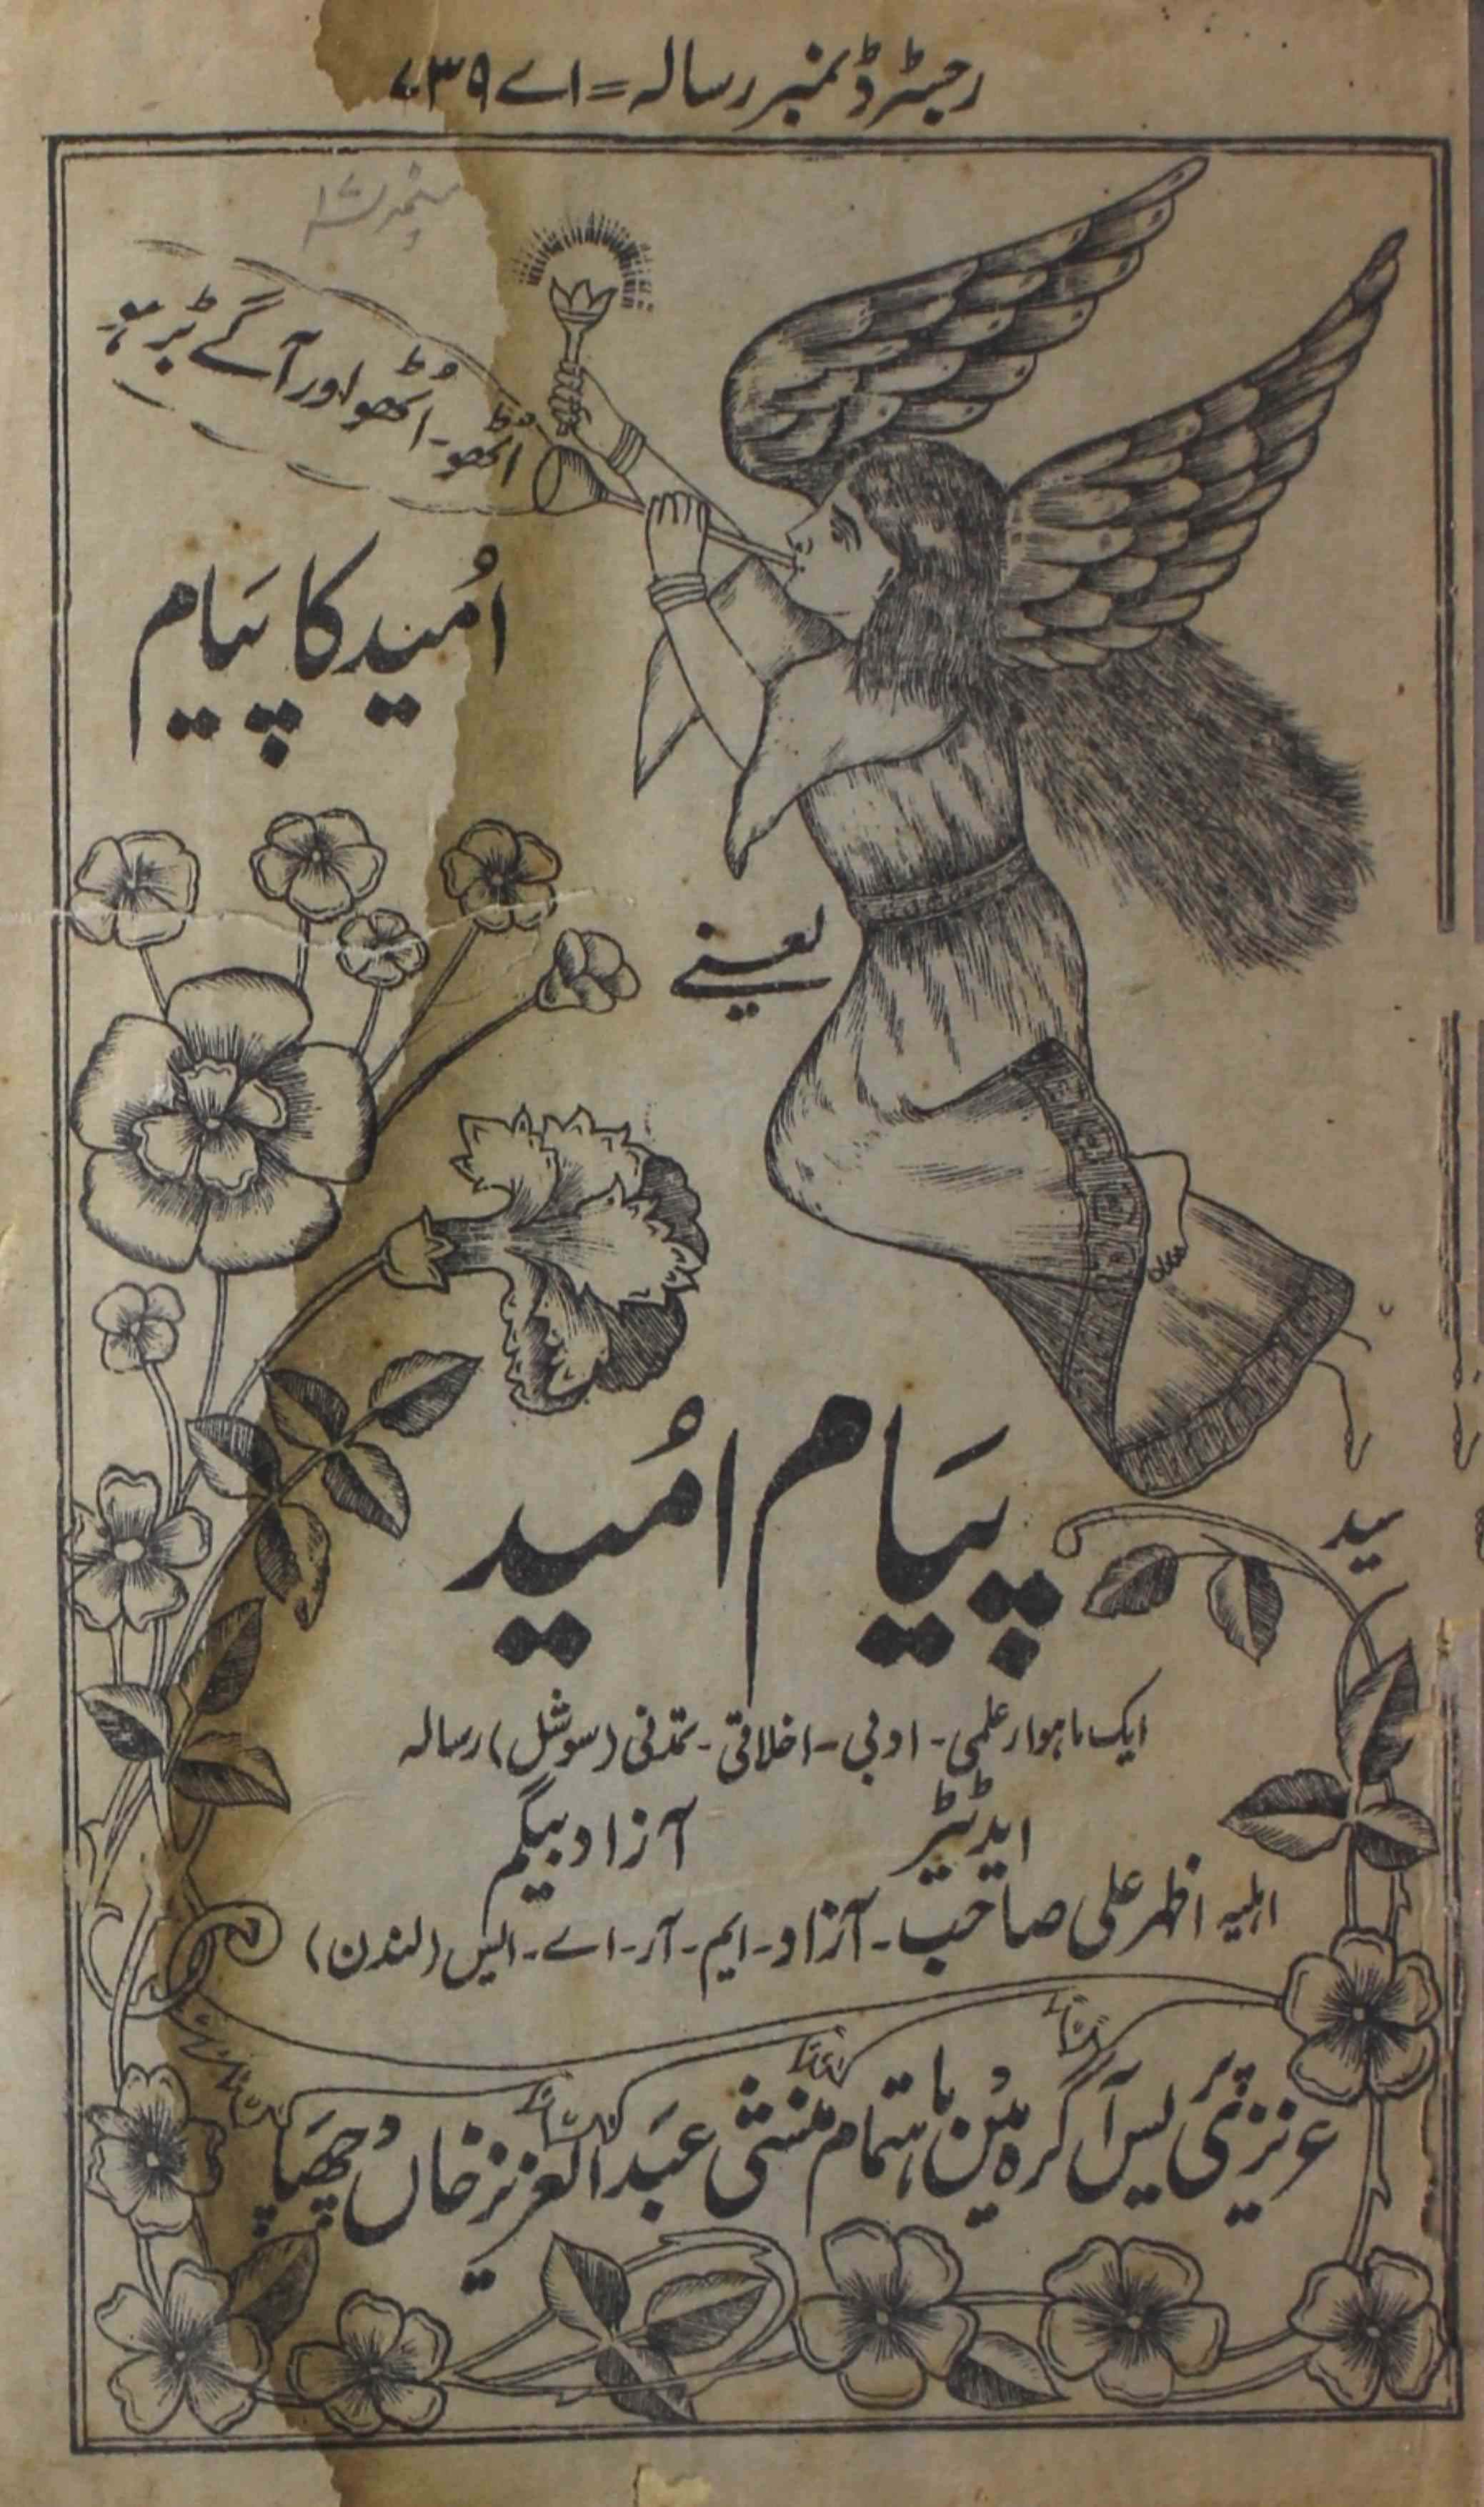 رجسٹرڈ نمبر رسالہ = اے ۷۳۹
اُٹھو۔ اُٹھو اور آگے بڑہو
اُمید کا پیام
یعنے
پیام اُمید
سید
ایک ماہوار علمی۔ ادبی۔ اخلاقی۔ تمدنی (سوشل) رسالہ
ایڈیٹر
آزاد بیگم
اہلیہ اظہر علی صاحب۔ آزاد۔ ایم۔ آر۔ اے۔ ایس (لندن)
عزیزی پریس آگرہ میں باہتمام منشی عبدالعزیز خاں چھپا